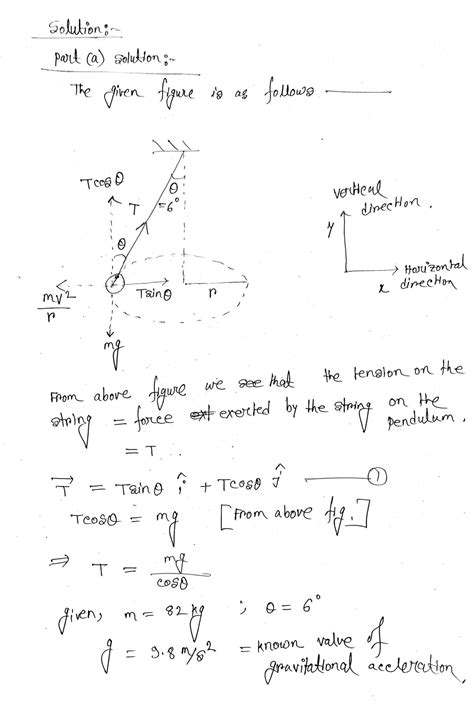 Solution:-
Part (a) solution:-
The given figure is as follows
Tcosθ
θ
T
=6°
θ
Tsinθ
r
mv²/r
mg
vertical
direction.
y
Horizontal
x direction
From above figure we see that the tension on the
string = force exerted by the string on the
pendulum.
= T.
T⃗ = Tsinθ î + Tcosθ ĵ ①
Tcosθ = mg [From above fig.]
⇒ T = mg/cosθ
given, m = 82 kg ; θ = 6°
g = 9.8 m/s² = known value of
gravitational acceleration.